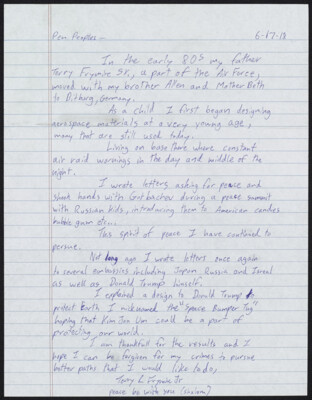 Pen Peoples— 6-17-18
In the early 80s my father
Terry Frymire Sr., a part of the Air Force,
moved with my brother Allen and Mother Beth
to Bitburg, Germany.
As a child I first began designing
aerospace materials at a very young age,
many that are still used today.
Living on base there where constant
air raid warnings in the day and middle of the
night.
I wrote letters asking for peace and
shook hands with Gorbachow during a peace summit
with Russian kids, introducing them to American candies
bubble gum etc..
This spirit of peace I have continued to
persue.
Not long ago I wrote letters once again
to several embassies including Japan, Russia and Isreal
as well as Donald Trump himself.
I explained a design to Donald Trump to
protect Earth I nicknamed the "Space Bumper Toy"
hoping that Kim Jon Un could be a part of
protecting our world.
I am thankful for the results and I
hope I can be forgiven for my crimes to pursue
better paths that I would like to do,
Terry L Frymire Jr.
peace be with you